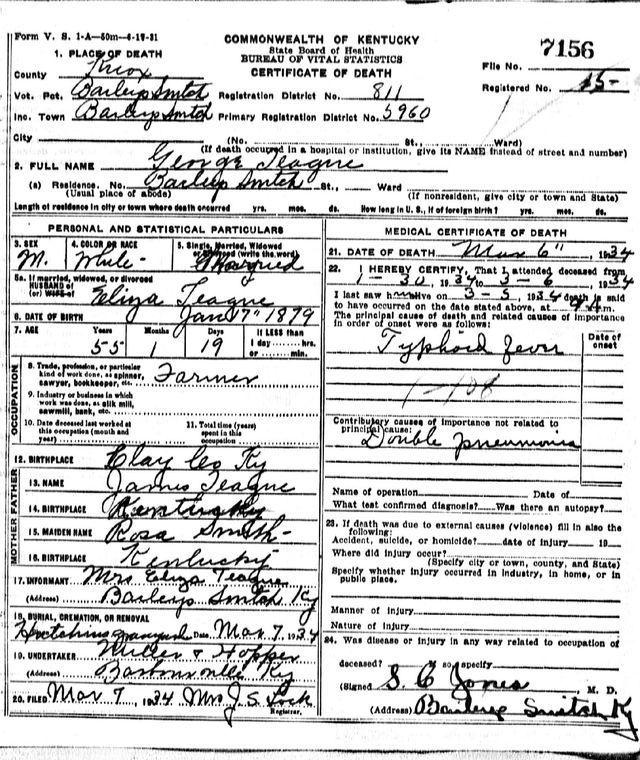 Form V. S. 1-A—50m—6-19-31
COMMONWEALTH OF KENTUCKY
State Board of Health
BUREAU OF VITAL STATISTICS
CERTIFICATE OF DEATH
7156
File No.
Registered No. 15-
1. PLACE OF DEATH
County Knox
Vot. Pct. Baileys Switch Registration District No. 811
Inc. Town Baileys Switch Primary Registration District No. 5960
City (No. St., Ward)
(If death occurred in a hospital or institution, give its NAME instead of street and number)
2. FULL NAME George Teague
(a) Residence. No. Baileys Switch St., Ward
(Usual place of abode) (If nonresident, give city or town and State)
Length of residence in city or town where death occurred yrs. mos. ds. How long in U. S., if of foreign birth? yrs. mos. ds.
PERSONAL AND STATISTICAL PARTICULARS
3. SEX 4. COLOR OR RACE 5. Single, Married, Widowed or Divorced (write the word)
M. White Married
5a. If married, widowed, or divorced
HUSBAND of
(or) WIFE of Eliza Teague
6. DATE OF BIRTH Jan 17" 1879
7. AGE Years Months Days If LESS than
55 1 19 1 day hrs.
or min.
OCCUPATION
8. Trade, profession, or particular
kind of work done, as spinner,
sawyer, bookkeeper, etc. Farmer
9. Industry or business in which
work was done, as silk mill,
sawmill, bank, etc.
10. Date deceased last worked at
this occupation (month and
year)
11. Total time (years)
spent in this
occupation
12. BIRTHPLACE Clay Co Ky
MOTHER FATHER
13. NAME James Teague
14. BIRTHPLACE Kentucky
15. MAIDEN NAME Rosa Smith
16. BIRTHPLACE Kentucky
17. INFORMANT Mrs Eliza Teague
(Address) Baileys Switch Ky
18. BURIAL, CREMATION, OR REMOVAL
Date Mar 7, 1934
19. UNDERTAKER & Hopper
(Address) Ky
20. FILED Mar 7, 1934 Mrs J. S. Lock
Registrar.
MEDICAL CERTIFICATE OF DEATH
21. DATE OF DEATH Mar 6", 1934
22. I HEREBY CERTIFY, That I attended deceased from
1-30, 1934 to 3-6, 1934
I last saw him alive on 3-5, 1934 death is said
to have occurred on the date stated above, at m.
The principal cause of death and related causes of importance
in order of onset were as follows:
Date of
onset
Typhoid fever
Contributory causes of importance not related to
principal cause:
Double pneumonia
Name of operation Date of
What test confirmed diagnosis? Was there an autopsy?
23. If death was due to external causes (violence) fill in also the
following:
Accident, suicide, or homicide? date of injury 19
Where did injury occur?
(Specify city or town, county, and State)
Specify whether injury occurred in industry, in home, or in
public place.
Manner of injury
Nature of injury
24. Was disease or injury in any way related to occupation of
deceased? If so, specify
(Signed S. C. Jones, M. D.
(Address) Baileys Switch Ky